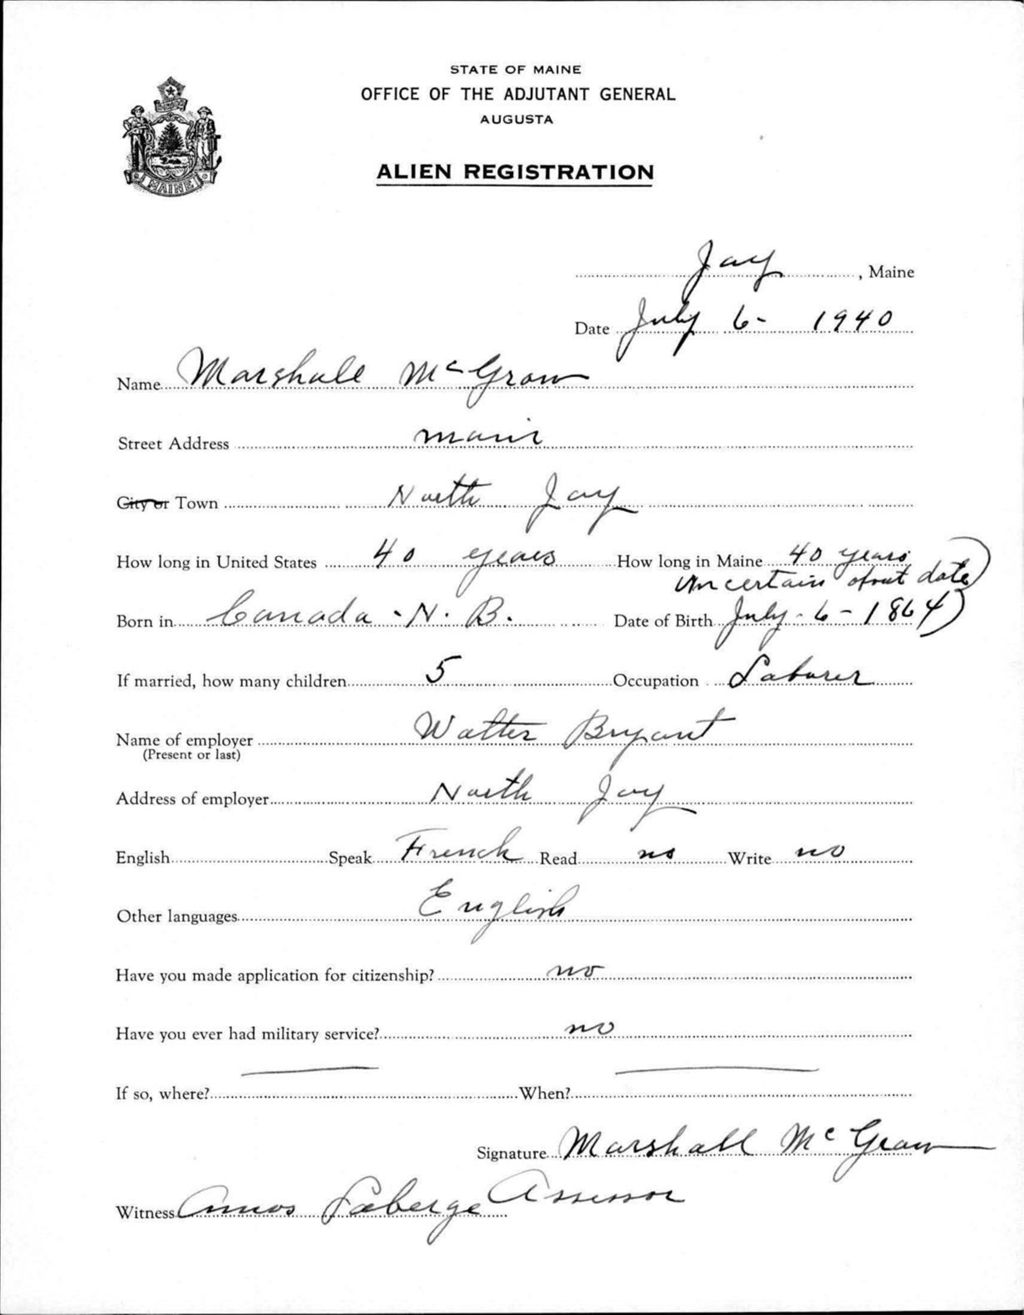 STATE OF MAINE
OFFICE OF THE ADJUTANT GENERAL
AUGUSTA
ALIEN REGISTRATION
MAINE
Jay, Maine
Date July 6- 1940
Name Marshall McGraw
Street Address main
City or Town North Jay
How long in United States 40 years How long in Maine 40 years
Uncertain about date
Born in Canada - N. B. Date of Birth July - 6 - 1864)
If married, how many children 5 Occupation Laborer
Name of employer Walter Bryant
(Present or last)
Address of employer North Jay
English Speak French Read no Write no
Other languages English
Have you made application for citizenship? no
Have you ever had military service? no
If so, where? When?
Signature Marshall McGraw
Witness Amos Laberge Assessor